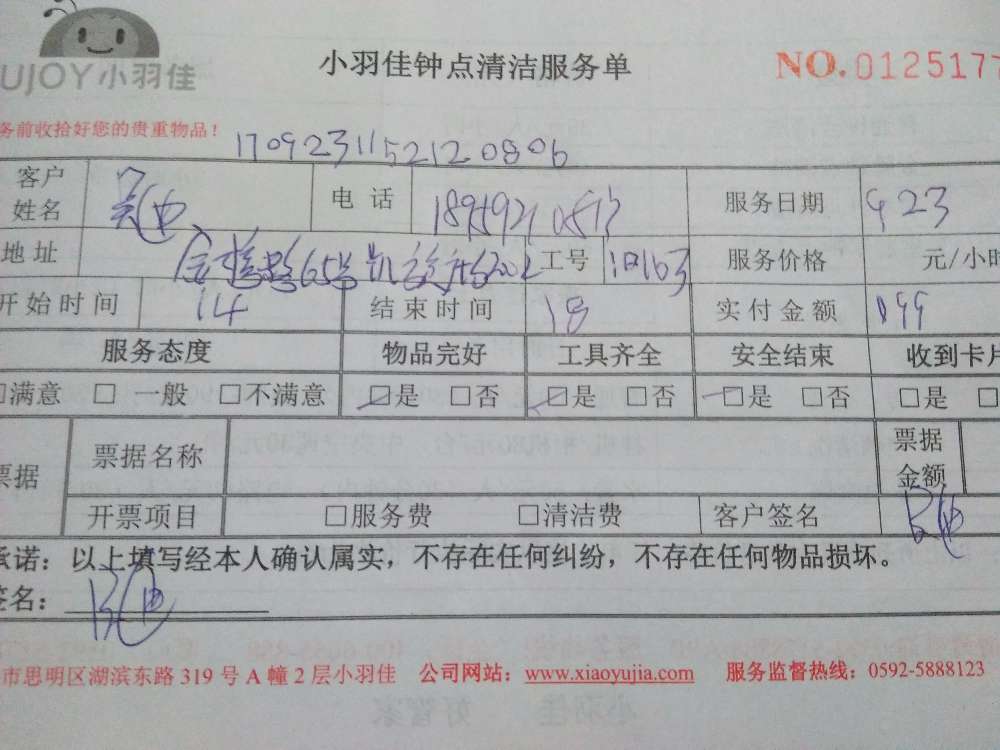 UJOY小羽佳
小羽佳钟点清洁服务单
NO.0125177
务前收拾好您的贵重物品！
1709231152120806
客户姓名 电话 服务日期 9 23
地址 工号 服务价格 元/小时
开始时间 14 结束时间 18 实付金额 199
服务态度 物品完好 工具齐全 安全结束 收到卡片
□满意 □一般 □不满意 □是 □否 □是 □否 □是 □否 □是 □
票据 票据名称 票据金额
开票项目 □服务费 □清洁费 客户签名
承诺：以上填写经本人确认属实，不存在任何纠纷，不存在任何物品损坏。
签名：
市思明区湖滨东路 319 号 A 幢 2 层小羽佳 公司网站：www.xiaoyujia.com 服务监督热线：0592-5888123